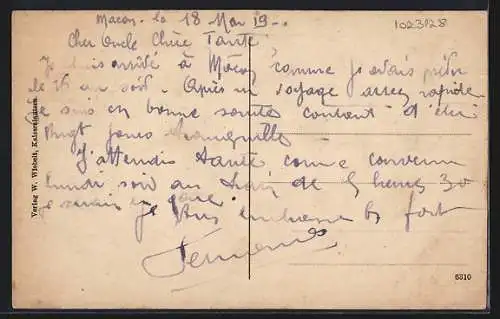 Macon. le 18 Mai 19
1023128
Cher Oncle Chère Tante
Je suis arrivé à Macon comme j'avais
le 16 au soir. Après un voyage assez rapide
Je suis en bonne sante content d'
Vingt jours tranquille
J'attendis tante comme convenu
lundi soir au train de 5 heures 30
je serais en gare. Je vous embrasse bs fort
Verlag W. Wiebelt, Kaiserslautern.
6310